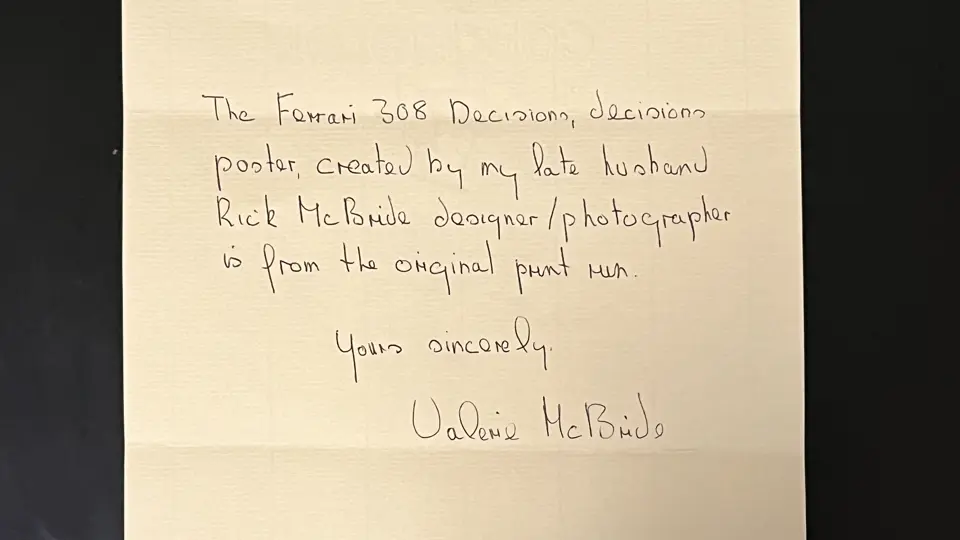 The Ferrari 308 Decisions, decisions
poster, created by my late husband
Rick McBride designer/photographer
is from the original print run.
Yours sincerely.
Valerie McBride